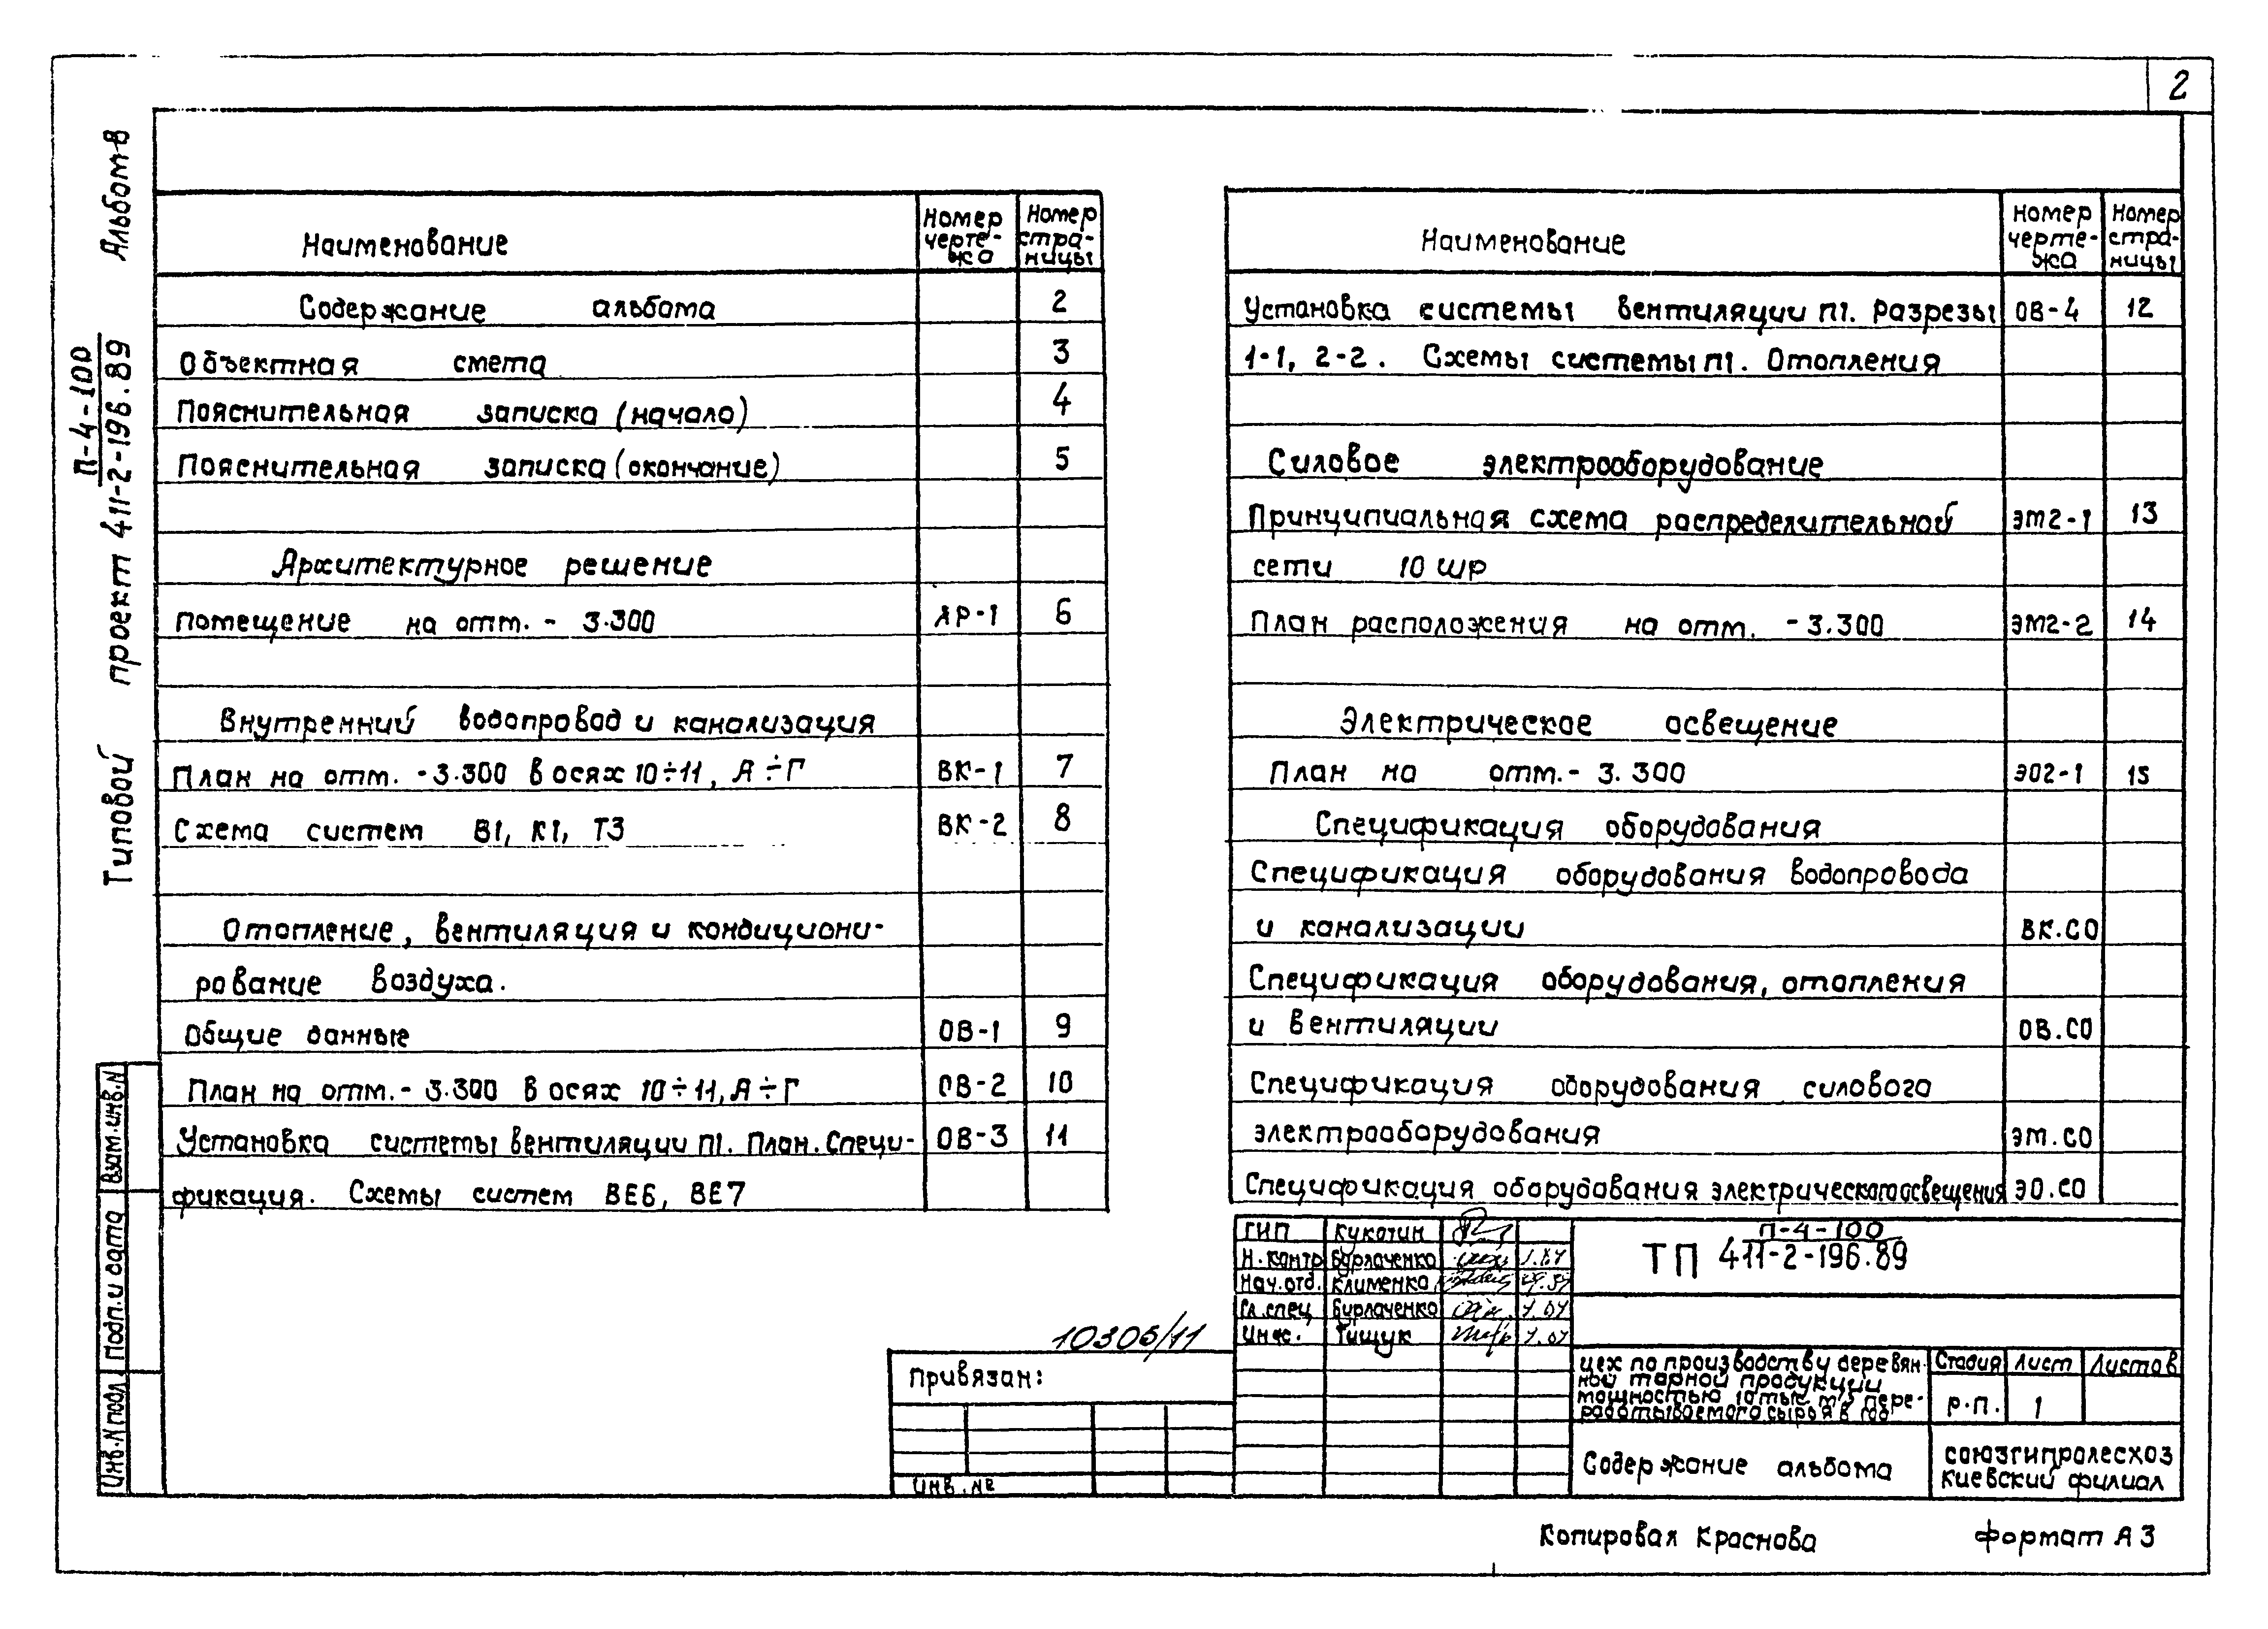 2
Типовой проект П-4-100 411-2-196.89 Альбом 8
Наименование Номер черте- жа Номер стра- ницы
Содержание альбома 2
Объектная смета 3
Пояснительная записка (начало) 4
Пояснительная записка (окончание) 5
Архитектурное решение
Помещение на отм. - 3.300 АР-1 6
Внутренний водопровод и канализация
План на отм. -3.300 в осях 10÷11, А÷Г ВК-1 7
Схема систем В1, К1, Т3 ВК-2 8
Отопление, вентиляция и кондициони-
рование воздуха.
Общие данные ОВ-1 9
План на отм. - 3.300 в осях 10÷11, А÷Г ОВ-2 10
Установка системы вентиляции П1. План. Специ- ОВ-3 11
фикация. Схемы систем ВЕ6, ВЕ7
Наименование Номер черте- жа Номер стра- ницы
Установка системы вентиляции П1. Разрезы ОВ-4 12
1-1, 2-2. Схемы системы П1. Отопления
Силовое электрооборудование
Принципиальная схема распределительной ЭМ2-1 13
сети 10 ШР
План расположения на отм. - 3.300 ЭМ2-2 14
Электрическое освещение
План на отм. - 3.300 ЭО2-1 15
Спецификация оборудования
Спецификация оборудования водопровода
и канализации ВК.СО
Спецификация оборудования, отопления
и вентиляции ОВ.СО
Спецификация оборудования силового
электрооборудования ЭМ.СО
Спецификация оборудования электрического освещения ЭО.СО
Взам.инв.N
Подп.и дата
Инв.N подл
10305/11
Привязан:
Инв.№
ГИП Кукотин
Н.контр Бурлаченко
Нач.отд. Клименко
Гл.спец Бурлаченко
Инж. Тищук
ТП П-4-100 411-2-196.89
Цех по производству деревян-
ной тарной продукции
мощностью 10тыс. м3 пере-
рабатываемого сырья в год
Стадия Лист Листов
Р.П. 1
Содержание альбома
Союзгипролесхоз
Киевский филиал
Копировал Краснова Формат А3